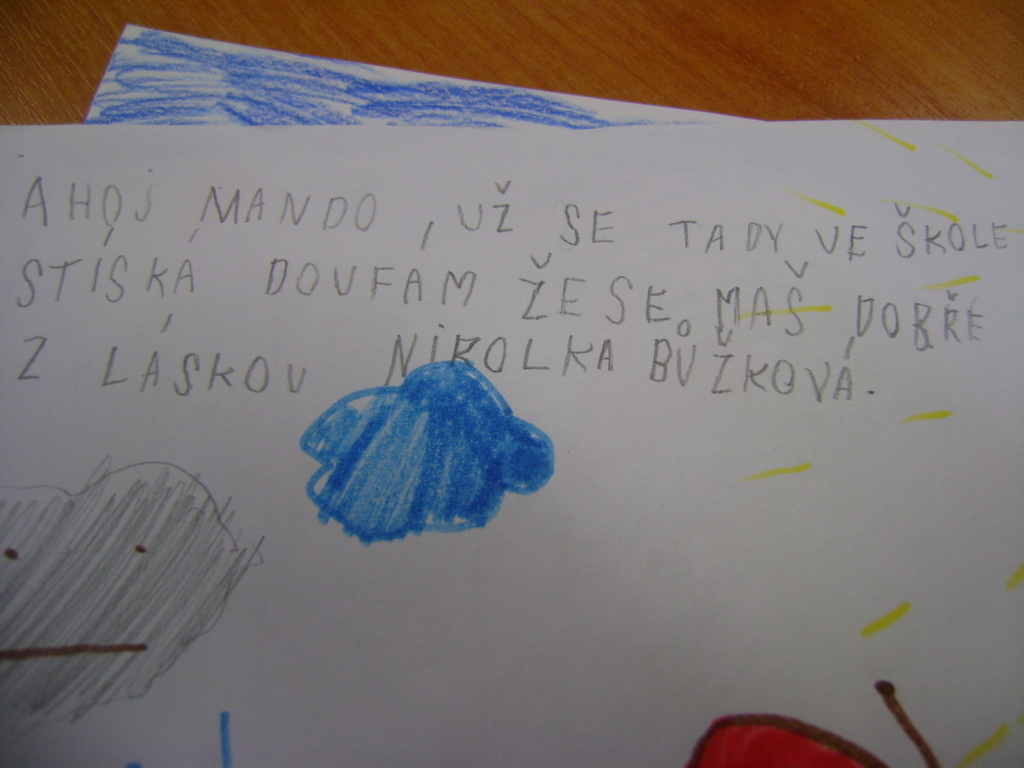 AHOJ MANDO, UŽ SE TADY VE ŠKOLE
STÍSKÁ DOUFAM ŽE SE MAŠ DOBŘE
Z LÁSKOU NIKOLKA BŮŽKOVÁ.